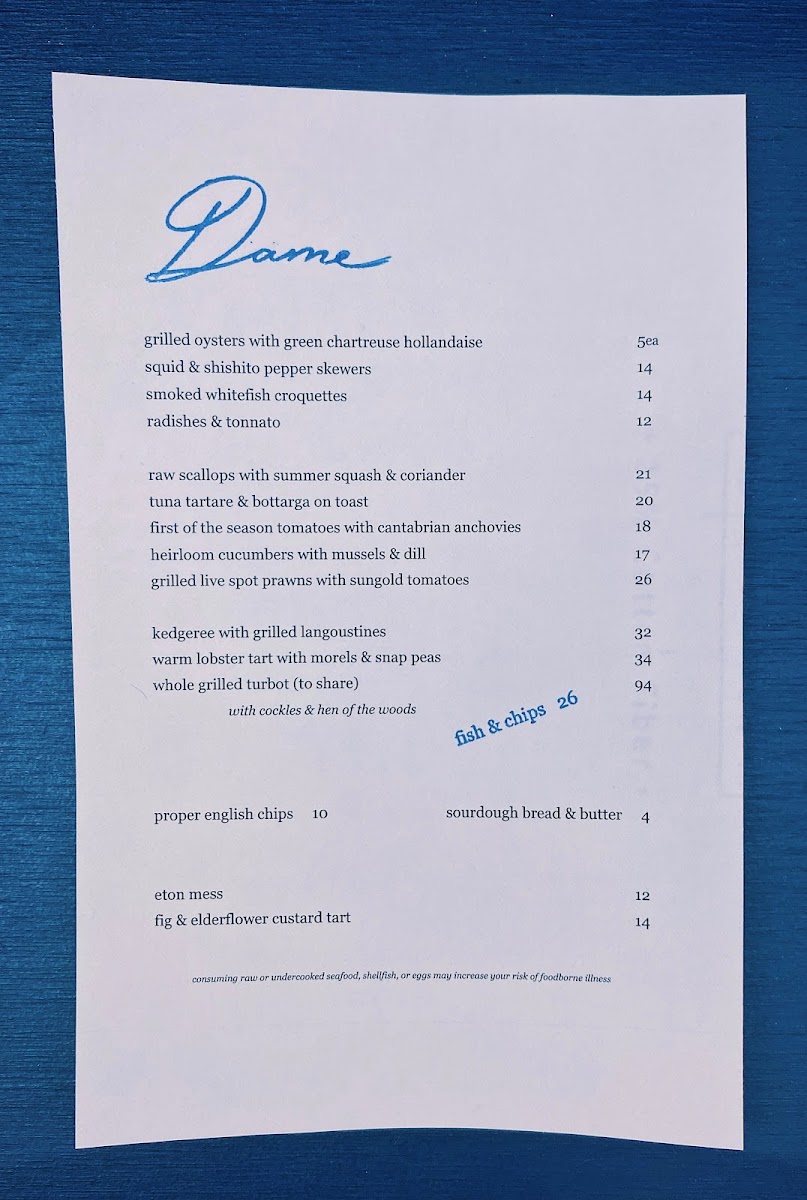 Dame
grilled oysters with green chartreuse hollandaise 5ea
squid & shishito pepper skewers 14
smoked whitefish croquettes 14
radishes & tonnato 12
raw scallops with summer squash & coriander 21
tuna tartare & bottarga on toast 20
first of the season tomatoes with cantabrian anchovies 18
heirloom cucumbers with mussels & dill 17
grilled live spot prawns with sungold tomatoes 26
kedgeree with grilled langoustines 32
warm lobster tart with morels & snap peas 34
whole grilled turbot (to share) 94
with cockles & hen of the woods
fish & chips 26
proper english chips 10 sourdough bread & butter 4
eton mess 12
fig & elderflower custard tart 14
consuming raw or undercooked seafood, shellfish, or eggs may increase your risk of foodborne illness